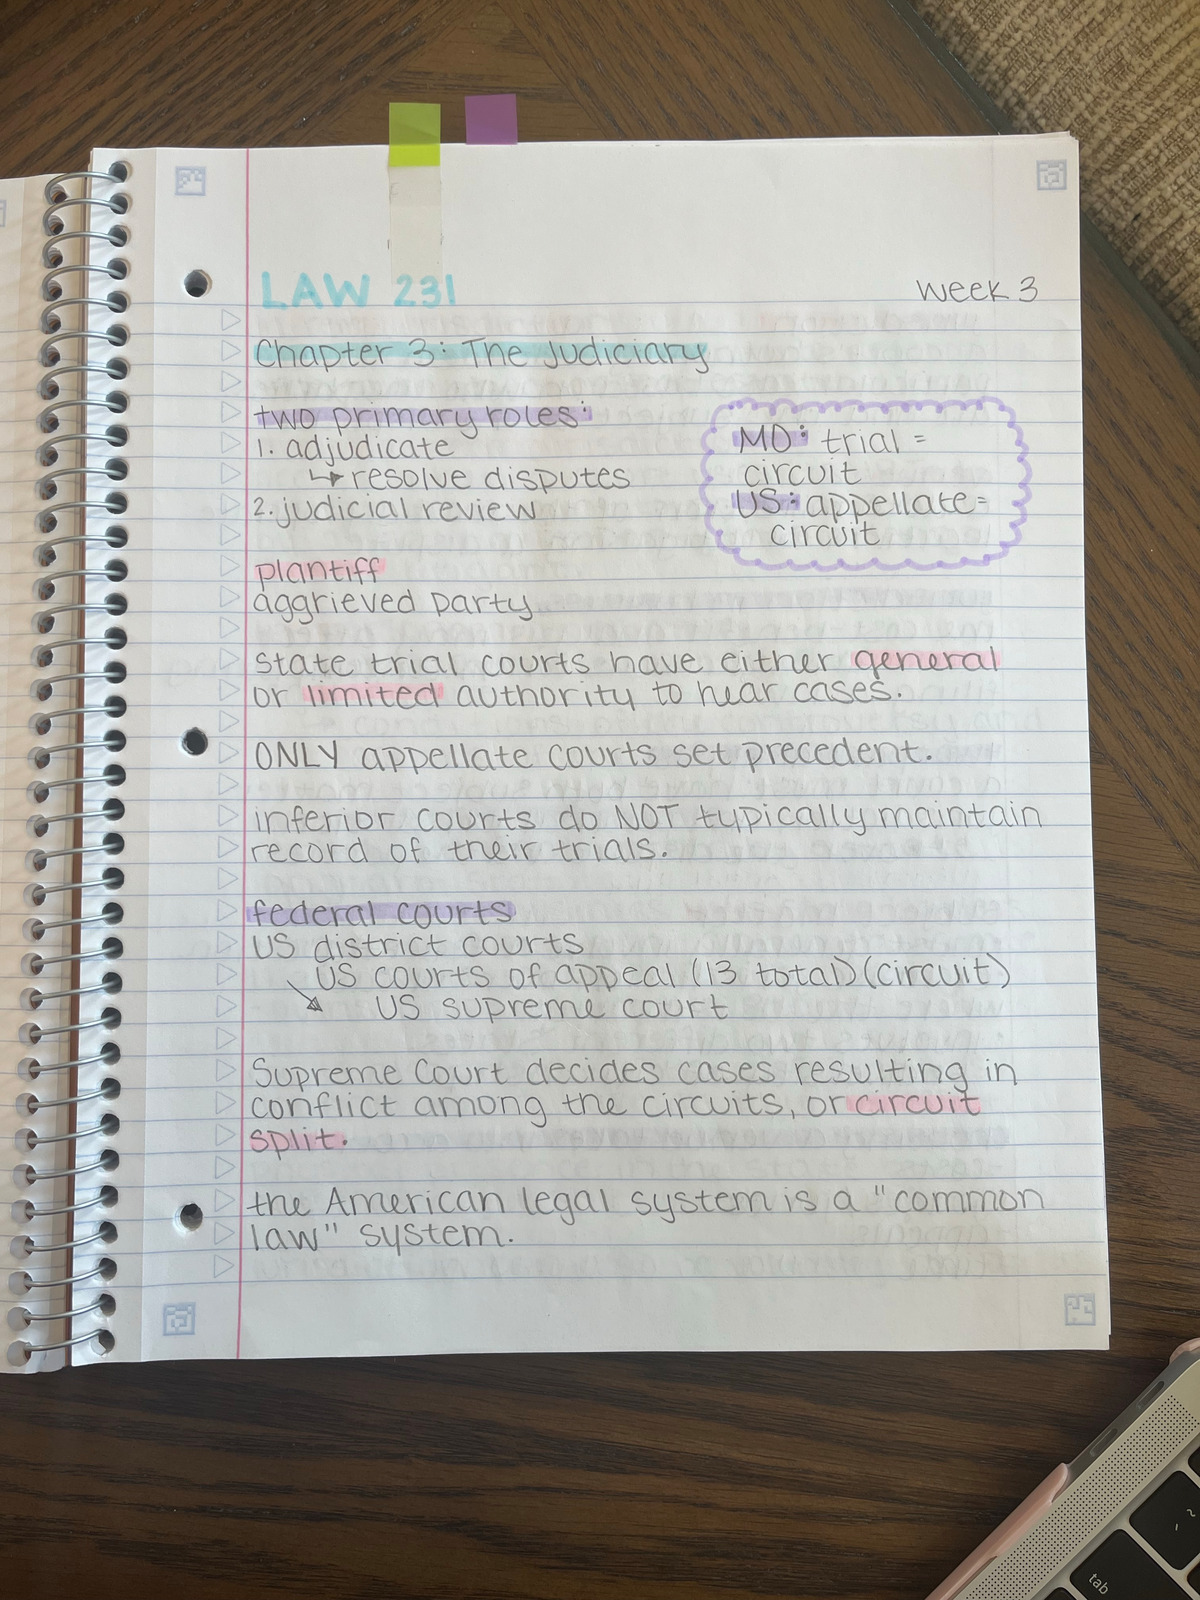 LAW 231
week 3
Chapter 3: The Judiciary
two primary roles:
1. adjudicate
↳ resolve disputes
2. judicial review
MO: trial =
circuit
US: appellate=
circuit
plantiff
aggrieved party
state trial courts have either general
or limited authority to hear cases.
ONLY appellate courts set precedent.
inferior courts do NOT typically maintain
record of their trials.
federal courts
US district courts
US courts of appeal (13 total) (circuit)
US supreme court
Supreme Court decides cases resulting in
conflict among the circuits, or circuit
split.
the American legal system is a "common
law" system.
tab